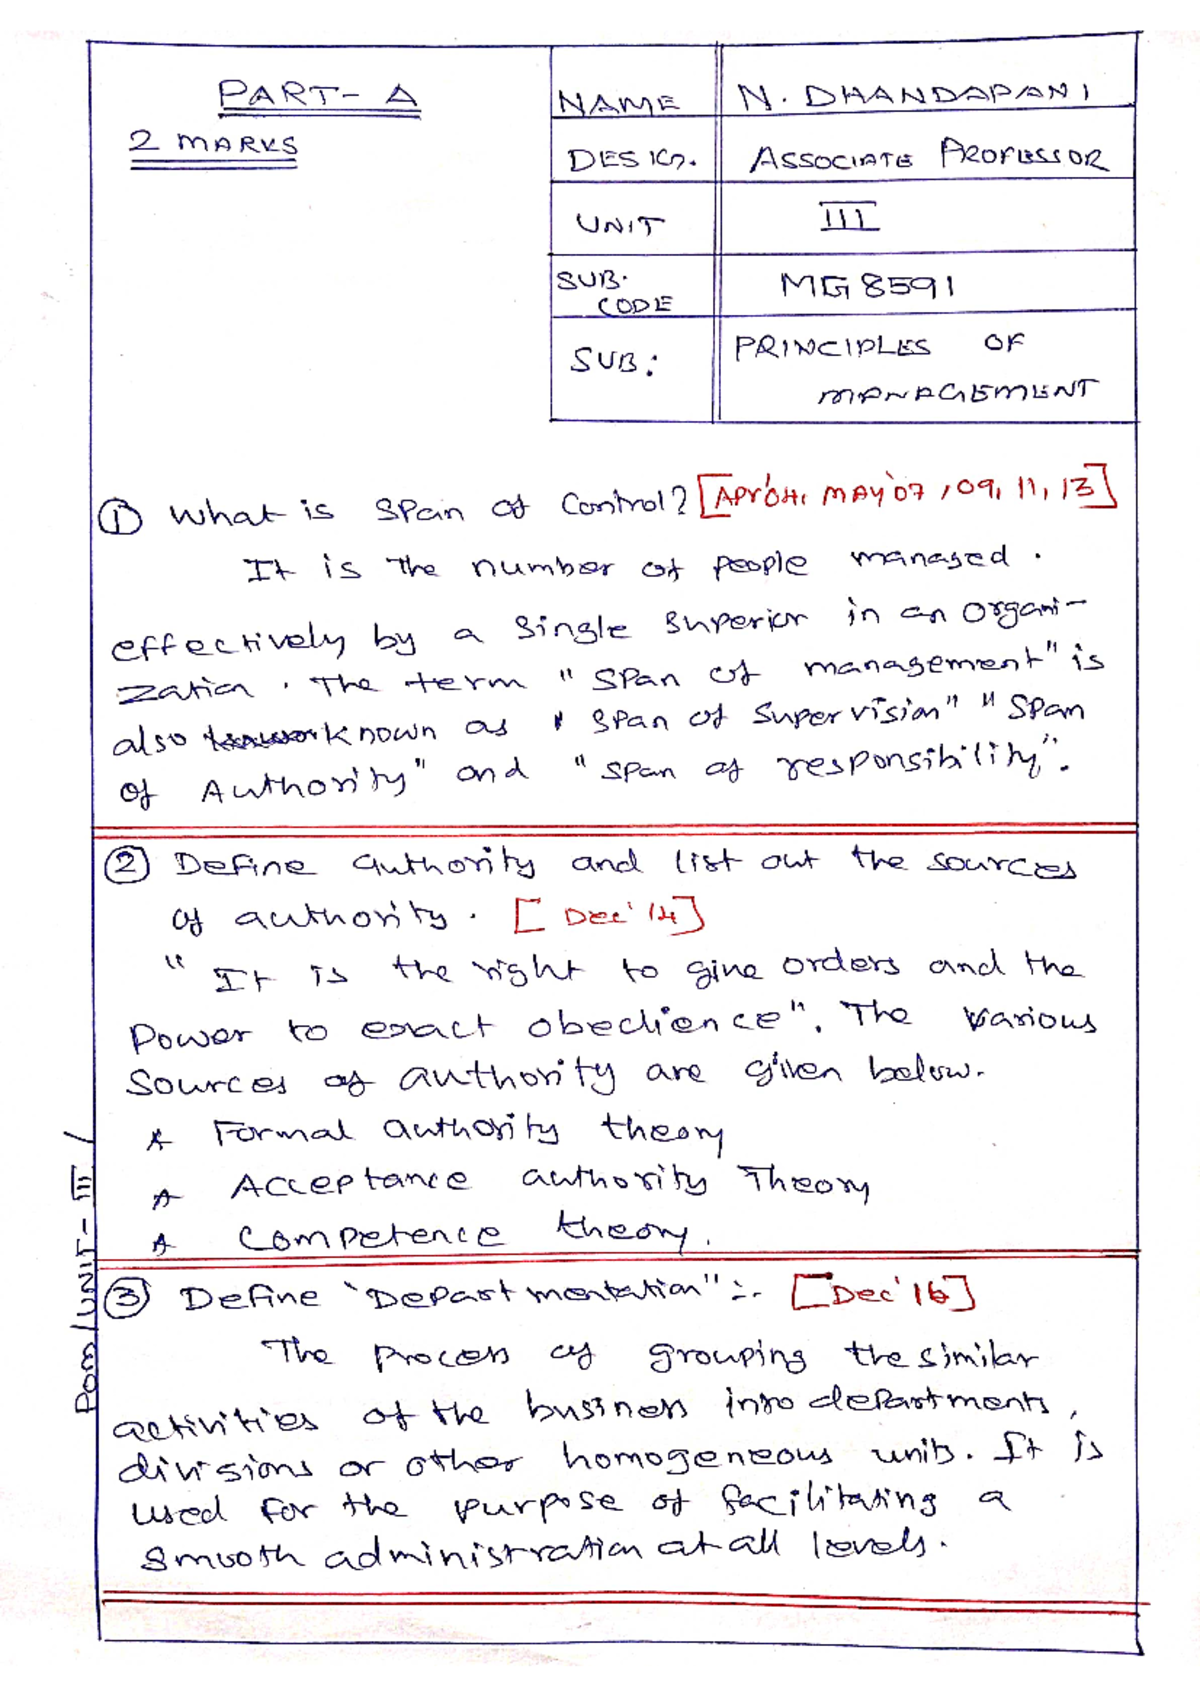 PART- A
2 MARKS
NAME N. DHANDAPANI
DESIGN. ASSOCIATE PROFESSOR
UNIT III
SUB. CODE MG8591
SUB: PRINCIPLES OF MANAGEMENT
① What is Span of Control? [APr'04, MAY'07, 09, 11, 13]
It is The number of people managed.
effectively by a Single Superior in an organi-
zation. The term "Span of management" is
also known as " Span of Supervision" "Span
of Authority" and "span of responsibility".
② Define authority and list out the sources
of authority. [Dec'14]
"It is the right to give orders and the
Power to exact obedience". The various
Sources of authority are given below.
* Formal authority theory
* Acceptance authority Theory
* Competence theory.
③ Define `Departmentation":-. [Dec'16]
The process of grouping the similar
activities of the business into departments,
divisions or other homogeneous units. It is
used for the purpose of facilitating a
smooth administration at all levels.
POM/UNIT-III/